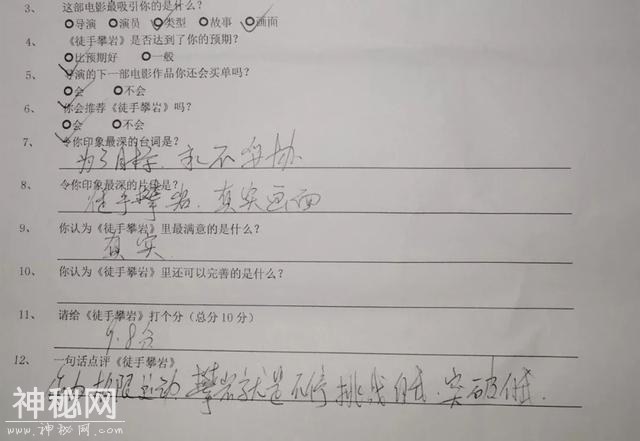 3、 这部电影最吸引你的是什么?
导演 演员 类型 故事 画面
4、 《徒手攀岩》是否达到了你的预期?
比预期好 一般
5、 导演的下一部电影作品你还会买单吗?
会 不会
6、 你会推荐《徒手攀岩》吗?
会 不会
7、 令你印象最深的台词是?
为了目标、永不妥协
8、 令你印象最深的片段是?
徒手攀岩、真实画面
9、 你认为《徒手攀岩》里最满意的是什么?
真实
10、 你认为《徒手攀岩》里还可以完善的是什么?
11、 请给《徒手攀岩》打个分(总分10分)
9.8分
12、 一句话点评《徒手攀岩》
极限运动 攀岩就是不停挑战自我、突破自我.
神秘网
www.神秘网.com